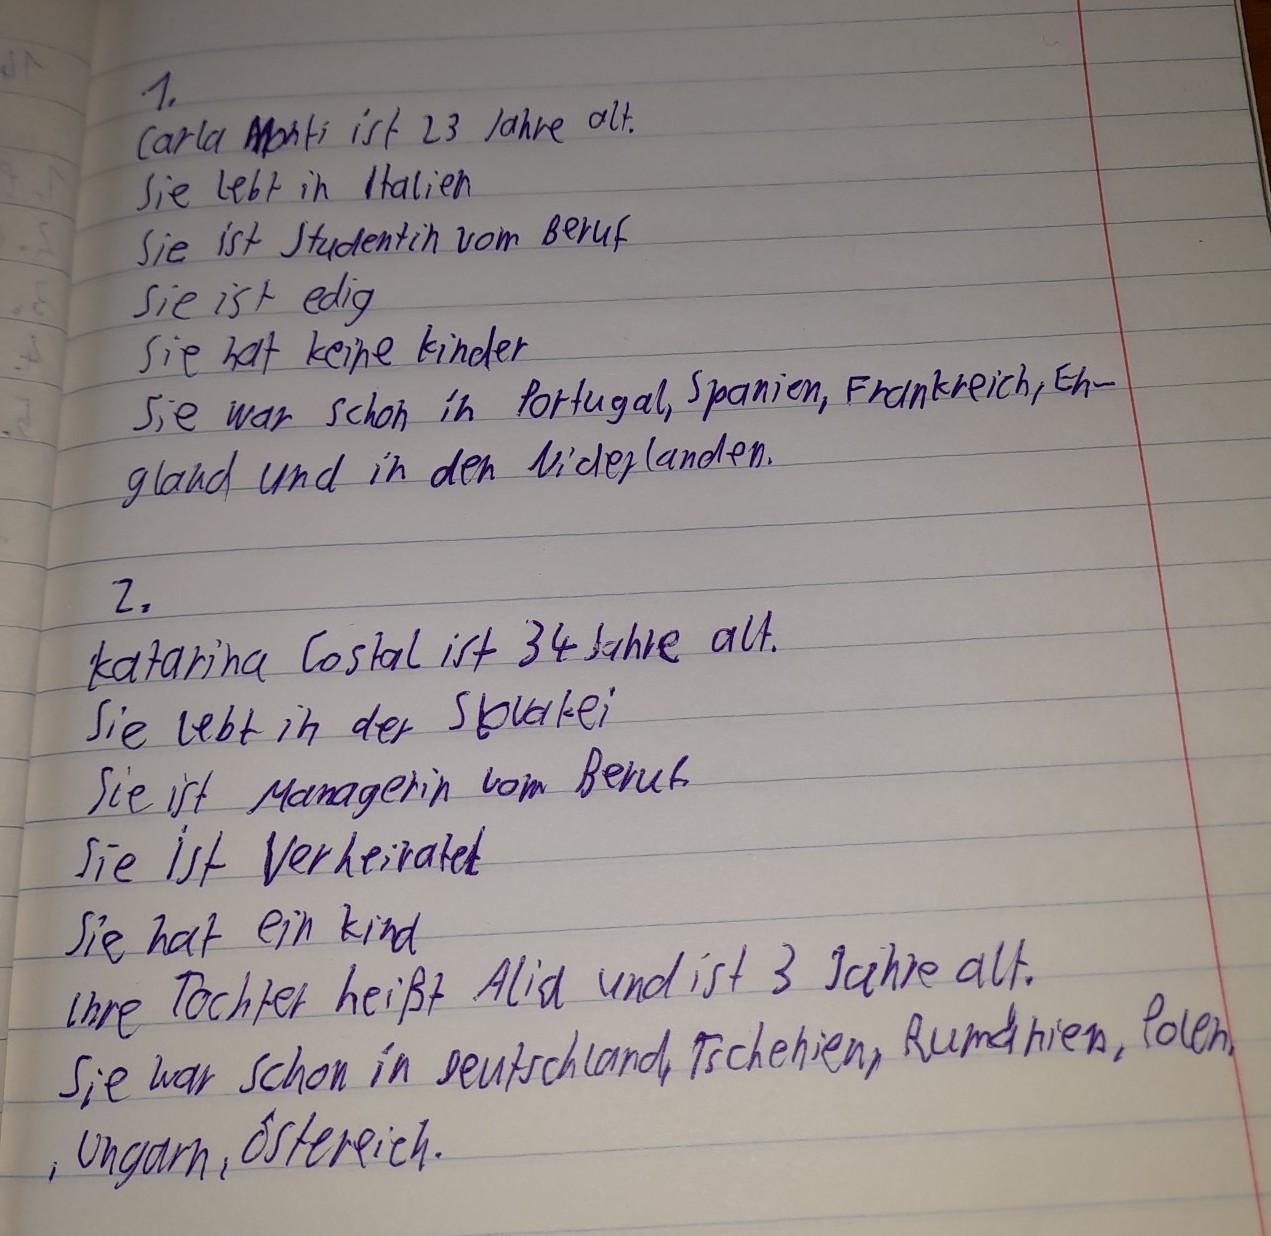 1.
Carla Monti ist 23 Jahre alt.
Sie lebt in Italien
Sie ist Studentin vom Beruf
Sie ist edig
Sie hat keine kinder
Sie war schon in Portugal, Spanien, Frankreich, En-
gland und in den Niderlanden.
2.
Katarina Costal ist 34 Jahre alt.
Sie lebt in der Slovakei
Sie ist Managerin vom Beruf
Sie ist Verheiratet
Sie hat ein kind
Ihre Tochter heißt und ist 3 Jahre alt.
Sie war schon in Deutschland, Tschehien, Rumänien, Polen,
, Ungarn, Östereich.